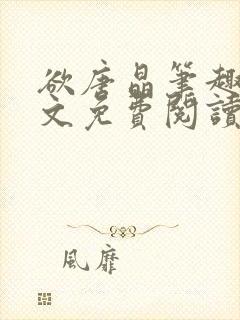 欲唐晶筆趣
文免費閱讀
風靡